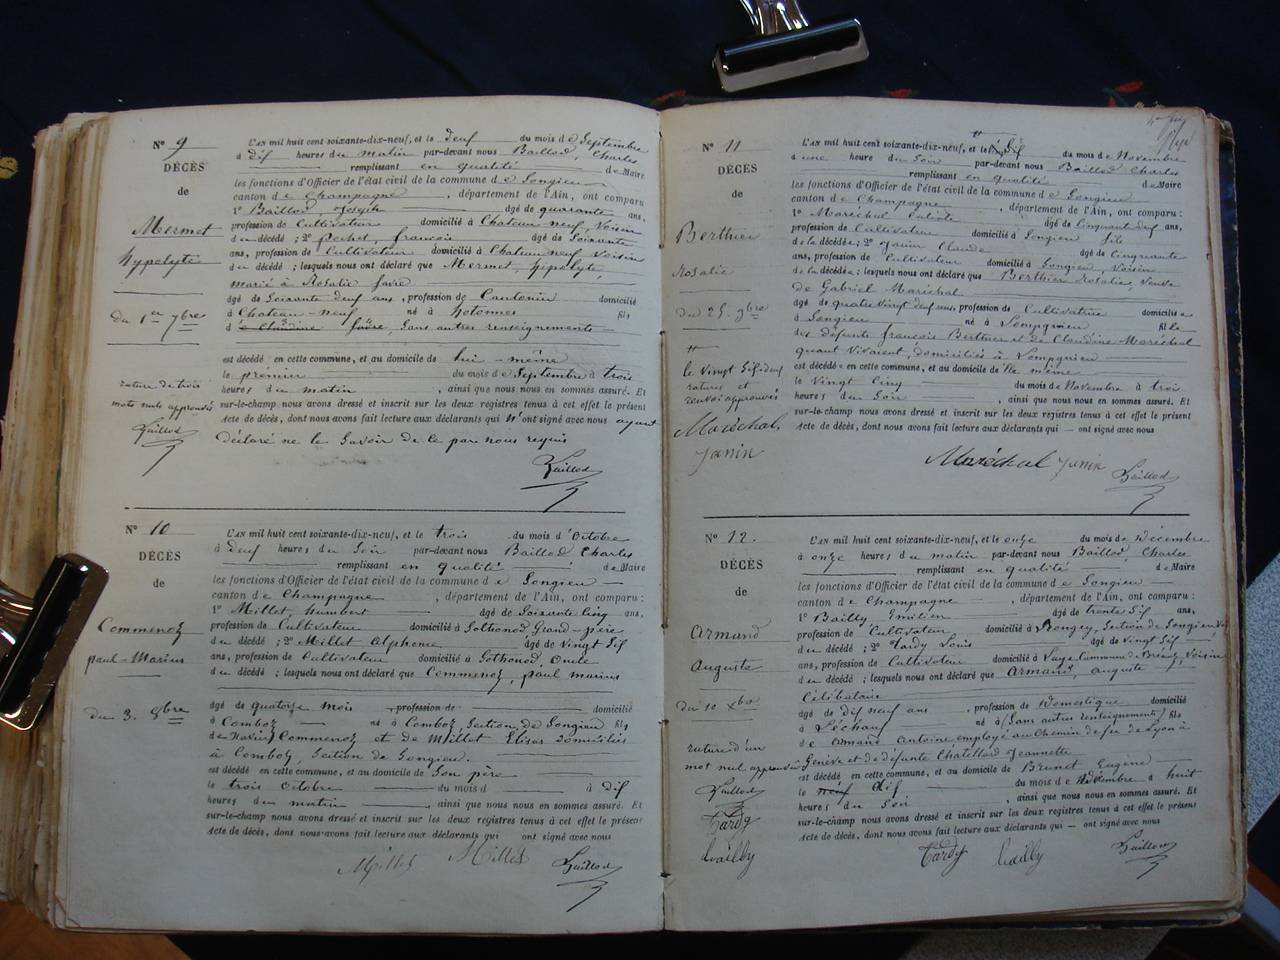 N° 9
DÉCÈS
de
Mermet
hypolyte
du 1er 7bre
rature de trois
mots nuls approuvés
Baillod
L'AN mil huit cent soixante-dix-neuf, et le deux du mois de Septembre
à dix heures du matin par-devant nous Baillod, Charles
remplissant en qualité de Maire
les fonctions d'Officier de l'état civil de la commune de Songieu
canton de Champagne, département de l'Ain, ont comparu
1° Baillod, Joseph âgé de quarante ans,
profession de Cultivateur domicilié à Chateau-neuf, Voisin
du décédé; 2° Pochet, françois âgé de Soixante
ans, profession de Cultivateur domicilié à Chateau neuf Voisin
du décédé; lesquels nous ont déclaré que Mermet, hypolyte
marié à Rosalie favre
âgé de Soixante deux ans, profession de Cantonier domicilié
à Chateau-neuf né à hotonnes fils
d'e Claudine favre, Sans autres renseignements
est décédé en cette commune, et au domicile de lui-même
le premier du mois de Septembre à trois
heures du matin, ainsi que nous nous en sommes assuré. Et
sur-le-champ nous avons dressé et inscrit sur les deux registres tenus à cet effet le présent
acte de décès, dont nous avons fait lecture aux déclarants qui n'ont signé avec nous ayant
déclaré ne le Savoir de ce par nous requis
Baillod
N° 10
DÉCÈS
de
Commenoz
paul-Marius
du 3. 8bre
L'AN mil huit cent soixante-dix-neuf, et le trois du mois d'Octobre
à deux heures du Soir par-devant nous Baillod Charles
remplissant en qualité de Maire
les fonctions d'Officier de l'état civil de la commune de Songieu
canton de Champagne, département de l'Ain, ont comparu:
1° Millet humbert âgé de Soixante Cinq ans,
profession de Cultivateur domicilié à Sothonod Grand-père
du décédé; 2° Millet Alphonse âgé de Vingt Six
ans, profession de Cultivateur domicilié à Sothonod, Oncle
du décédé; lesquels nous ont déclaré que Commenoz, paul marius
âgé de quatorze mois, profession de domicilié
à Comboz né à Comboz Section de Songieu fils
de Xavier Commenoz et de Millet Elisa domiciliés
à Comboz, Section de Songieu.
est décédé en cette commune, et au domicile de Son père
le trois Octobre du mois d à dix
heures du matin, ainsi que nous nous en sommes assuré. Et
sur-le-champ nous avons dressé et inscrit sur les deux registres tenus à cet effet le présent
acte de décès, dont nous avons fait lecture aux déclarants qui ont signé avec nous
Millet Millet Baillod
N° 11
DÉCÈS
de
Berthier
Rosalie
du 25. 9bre
le Vingt Six deux
ratures et
renvoi approuvés
Maréchal,
Janin
L'AN mil huit cent soixante-dix-neuf, et le du mois de Novembre
à une heure du Soir par-devant nous Baillod Charles
remplissant en qualité de Maire
les fonctions d'Officier de l'état civil de la commune de Songieu
canton de Champagne, département de l'Ain, ont comparu:
1° Maréchal âgé de Cinquante deux ans,
profession de Cultivateur domicilié à Songieu fils
de la décédée; 2° Janin Claude âgé de Cinquante
ans, profession de Cultivateur domicilié à Songieu, Voisin
de la décédée; lesquels nous ont déclaré que Berthier Rosalie, Veuve
de Gabriel Maréchal
âgé de quatre Vingt deux ans, profession de Cultivatrice domiciliée
à Songieu né à Lompgnieu fille
des défunts françois Berthier et de Claudine Maréchal
quant Vivaient, domiciliés à Lompgnieu
est décédée en cette commune, et au domicile d'elle même
le Vingt Cinq du mois de Novembre à trois
heures du Soir, ainsi que nous nous en sommes assuré. Et
sur-le-champ nous avons dressé et inscrit sur les deux registres tenus à cet effet le présent
acte de décès, dont nous avons fait lecture aux déclarants qui ont signé avec nous
Maréchal Janin Baillod
N° 12.
DÉCÈS
de
Armand
Auguste
du 10 xbre
rature d'un
mot nul approuvée
Baillod
Tardy
Bailly
L'AN mil huit cent soixante-dix-neuf, et le onze du mois de Décembre
à onze heures du matin par-devant nous Baillod, Charles
remplissant en qualité de Maire
les fonctions d'Officier de l'état civil de la commune de Songieu
canton de Champagne, département de l'Ain, ont comparu:
1° Bailly Emilien âgé de trente Six ans,
profession de Cultivateur domicilié à Bongey, Section de Songieu
du décédé; 2° Tardy Louis âgé de Vingt Six
ans, profession de Cultivateur domicilié à Commune de Voisin
du décédé; lesquels nous ont déclaré que Armand, auguste
Célibataire
âgé de dix neuf ans, profession de Domestique domicilié
à né à (Sans autres renseignements) fils
de Armand Antoine employé au Chemin de fer de Lyon à
Genève et de défunte Chatillard Jeannette
est décédé en cette commune, et au domicile de Brunet Eugène
le neuf dix du mois de Décembre à huit
heures du Soir, ainsi que nous nous en sommes assuré. Et
sur-le-champ nous avons dressé et inscrit sur les deux registres tenus à cet effet le présent
acte de décès, dont nous avons fait lecture aux déclarants qui ont signé avec nous
Tardy Bailly Baillod